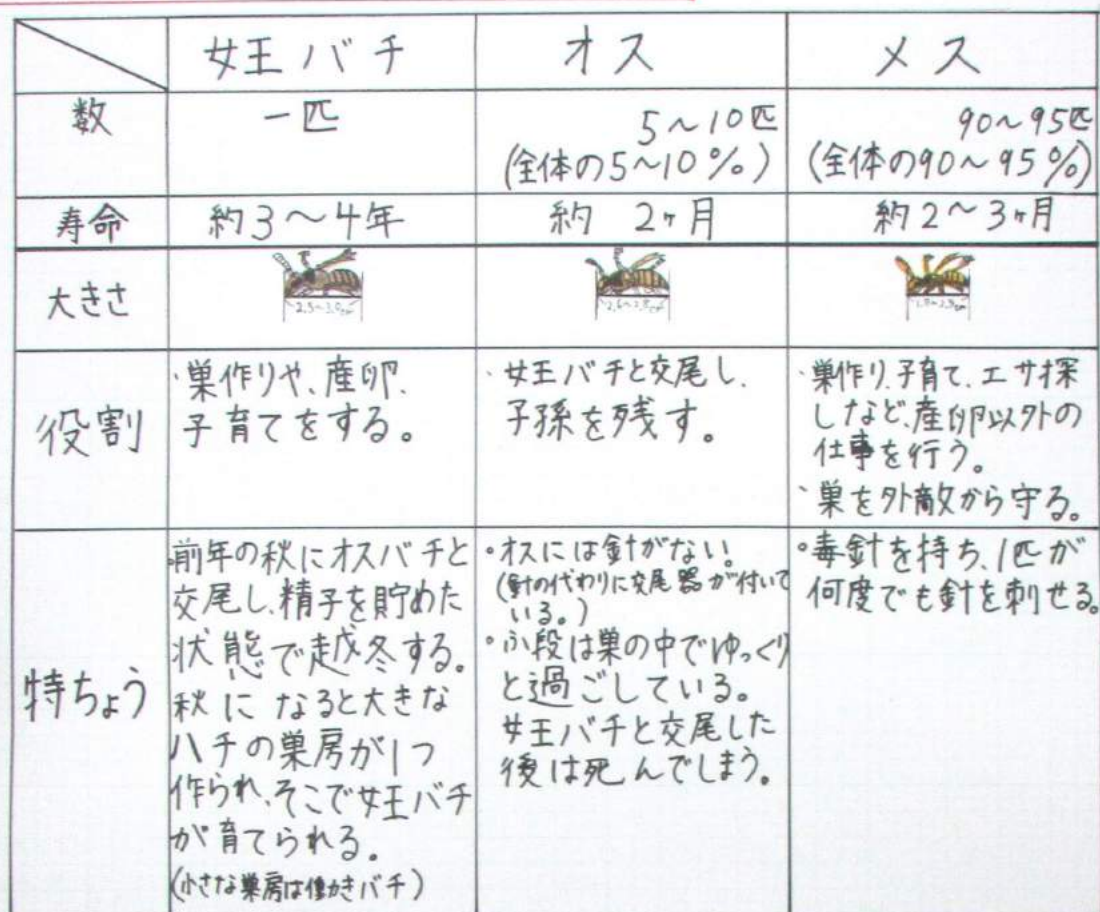 女王バチ
オス
メス
数
一匹
5～10匹
(全体の5～10%)
90～95匹
(全体の90～95%)
寿命
約3～4年
約 2ヶ月
約2～3ヶ月
大きさ
役割
・巣作りや、産卵、
子育てをする。
・女王バチと交尾し、
子孫を残す。
・巣作り、子育て、エサ探
しなど、産卵以外の
仕事を行う。
・巣を外敵から守る。
特ちょう
・前年の秋にオスバチと
交尾し、精子を貯めた
状態で越冬する。
秋に なると大きな
ハチの巣房が1つ
作られ、そこで女王バチ
が育てられる。
(小さな巣房は働きバチ)
・オスには針がない。
(針の代わりに交尾器が付いて
いる。)
・ふ段は巣の中でゆっくり
と過ごしている。
女王バチと交尾した
後は死んでしまう。
・毒針を持ち、1匹が
何度でも針を刺せる。